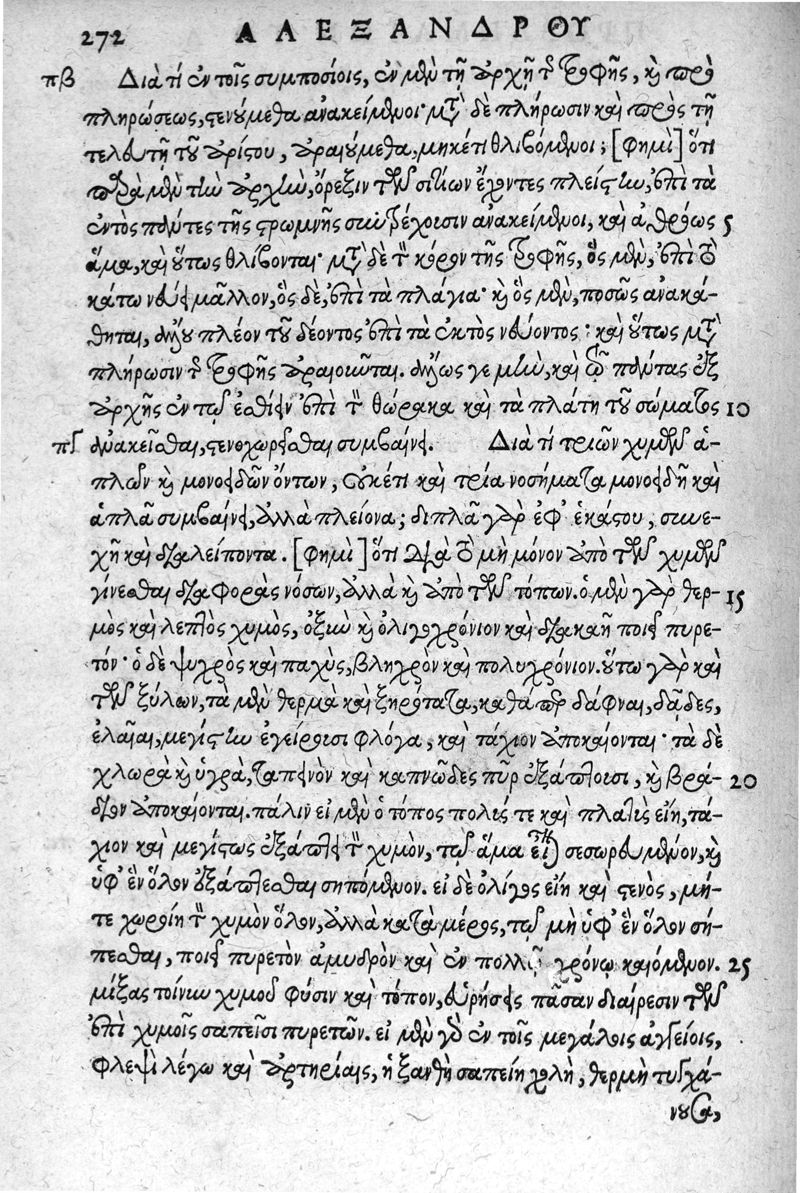 272 ΑΛΕΞΑΝΔΡΟΥ
πβ Διὰ τί ἐν τοῖς συμποσίοις, ἐν μὲν τῇ ἀρχῇ τῆς τροφῆς, καὶ πρὸ
πληρώσεως, στενούμεθα ἀνακείμενοι· μετὰ δὲ πλήρωσιν καὶ πρὸς τῇ
τελευτῇ τοῦ ἀρίστου, ἀραιούμεθα, μηκέτι θλιβόμενοι; [φημὶ] ὅτι
παρὰ μὲν τὴν ἀρχὴν, ὄρεξιν τῶν σιτίων ἔχοντες πλείστην, ἐπὶ τὰ
ἐντὸς πάντες τῆς στρωμνῆς συντρέχουσιν ἀνακείμενοι, καὶ ἀθρόως 5
ἅμα, καὶ οὕτως θλίβονται· μετὰ δὲ τὸν κόρον τῆς τροφῆς, ὃς μὲν, ἐπὶ τὸ
κάτω νεύει μᾶλλον, ὃς δὲ, ἐπὶ τὰ πλάγια· καὶ ὃς μὲν, ποσῶς ἀνακά-
θηται, ἄλλου πλέον τοῦ δέοντος ἐπὶ τὰ ἐκτὸς νεύοντος· καὶ οὕτως μετὰ
πλήρωσιν τῆς τροφῆς ἀραιοῦνται. ἄλλως γε μὴν, καὶ τῷ πάντας ἐξ
ἀρχῆς ἐν τῷ ἐσθίειν ἐπὶ τὸν θώρακα καὶ τὰ πλάτη τοῦ σώματος 10
πγ ἀνακεῖσθαι, στενοχωρεῖσθαι συμβαίνει. Διὰ τί τριῶν χυμῶν ἁ-
πλῶν καὶ μονοειδῶν ὄντων, οὐκέτι καὶ τρία νοσήματα μονοειδῆ καὶ
ἁπλᾶ συμβαίνει, ἀλλὰ πλείονα; διπλᾶ γὰρ ἐφ' ἑκάστου, συνε-
χῆ καὶ διαλείποντα. [φημὶ] ὅτι διὰ τὸ μὴ μόνον ἀπὸ τῶν χυμῶν
γίνεσθαι διαφορὰς νόσων, ἀλλὰ καὶ ἀπὸ τῶν τόπων. ὁ μὲν γὰρ θερ- 15
μὸς καὶ λεπτὸς χυμὸς, ὀξὺν καὶ ὀλιγοχρόνιον καὶ διακαῆ ποιεῖ πυρε-
τόν· ὁ δὲ ψυχρὸς καὶ παχὺς, βληχρὸν καὶ πολυχρόνιον. οὕτω γὰρ καὶ
τῶν ξύλων, τὰ μὲν θερμὰ καὶ ξηρότατα, καθάπερ δάφναι, δᾷδες,
ἐλαῖαι, μεγίστην ἐγείρουσι φλόγα, καὶ τάχιον ἀποκαίονται· τὰ δὲ
χλωρὰ καὶ ὑγρὰ, ταπεινὸν καὶ καπνῶδες πῦρ ἐξάπτουσι, καὶ βρά- 20
διον ἀποκαίονται. πάλιν εἰ μὲν ὁ τόπος πολύς τε καὶ πλατὺς εἴη, τά-
χιον καὶ μεγίστως ἐξάπτει τὸν χυμὸν, τῷ ἅμα ἐπὶ σεσωρευμένον, καὶ
ὑφ' ἓν ὅλον ἐξάπτεσθαι σηπόμενον. εἰ δὲ ὀλίγος εἴη καὶ στενὸς, μή-
τε χωροίη τὸν χυμὸν ὅλον, ἀλλὰ κατὰ μέρος, τῷ μὴ ὑφ' ἓν ὅλον σή-
πεσθαι, ποιεῖ πυρετὸν ἀμυδρὸν καὶ ἐν πολλῷ χρόνῳ καιόμενον. 25
μίξας τοίνυν χυμοῦ φύσιν καὶ τόπον, εὑρήσεις πᾶσαν διαίρεσιν τῶν
ἐπὶ χυμοῖς σαπεῖσι πυρετῶν. εἰ μὲν γὰρ ἐν τοῖς μεγάλοις ἀγγείοις,
φλεψὶ λέγω καὶ ἀρτηρίαις, ἡ ξανθὴ σαπείη χολὴ, θερμὴ τυγχά-
νουσα,